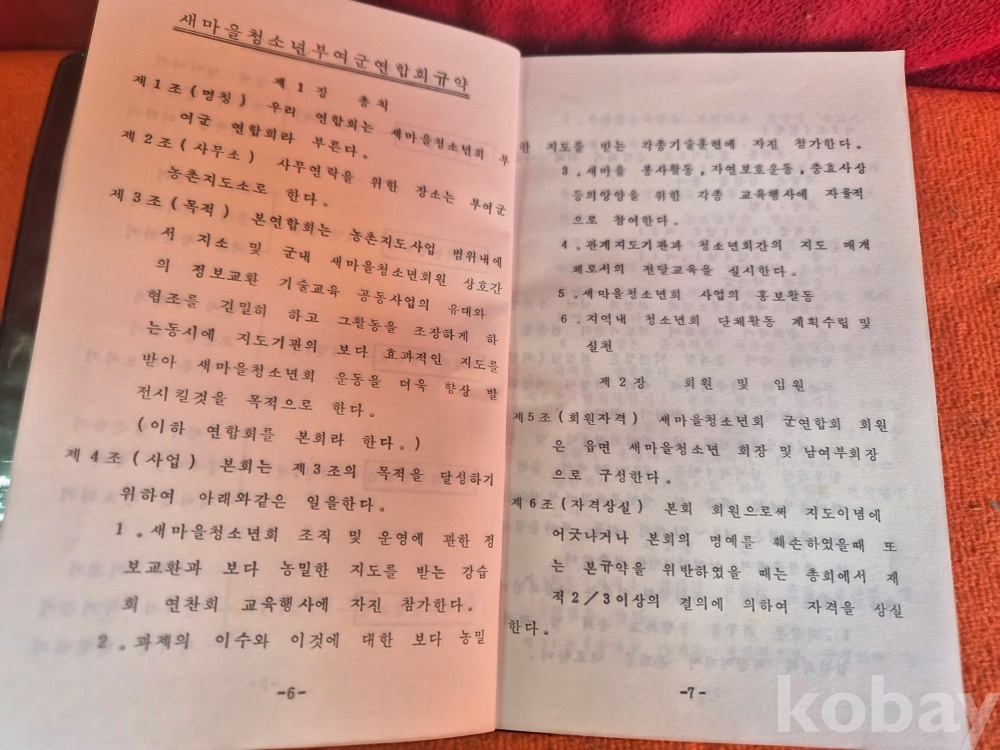 새마을청소년부여군연합회규약
제1장 총칙
제1조(명칭) 우리 연합회는 새마을청소년회 부
여군 연합회라 부른다.
제2조(사무소) 사무연락을 위한 장소는 부여군
농촌지도소로 한다.
제3조(목적) 본연합회는 농촌지도사업 범위내에
서 지소 및 군내 새마을청소년회원 상호간
의 정보교환 기술교육 공동사업의 유대와
협조를 긴밀히 하고 그활동을 조장하게 하
는동시에 지도기관의 보다 효과적인 지도를
받아 새마을청소년회 운동을 더욱 향상 발
전시킬것을 목적으로 한다.
(이하 연합회를 본회라 한다.)
제4조(사업) 본회는 제3조의 목적을 달성하기
위하여 아래와같은 일을한다.
1.새마을청소년회 조직 및 운영에 관한 정
보교환과 보다 농밀한 지도를 받는 강습
회 연찬회 교육행사에 자진 참가한다.
2.과제의 이수와 이것에 대한 보다 농밀
-6-
한 지도를 받는 각종기술훈련에 자진 참가한다.
3.새마을 봉사활동,자연보호운동,충효사상
등의앙양을 위한 각종 교육행사에 자율적
으로 참여한다.
4.관계지도기관과 청소년회간의 지도 매개
체로서의 전달교육을 실시한다.
5.새마을청소년회 사업의 홍보활동
6.지역내 청소년회 단체활동 계획수립 및
실천
제2장 회원 및 임원
제5조(회원자격) 새마을청소년회 군연합회 회원
은 읍면 새마을청소년 회장 및 남여부회장
으로 구성한다.
제6조(자격상실) 본회 회원으로써 지도이념에
어긋나거나 본회의 명예를 훼손하였을때 또
는 본규약을 위반하였을 때는 총회에서 재
적2/3이상의 결의에 의하여 자격을 상실
한다.
-7-
kobay